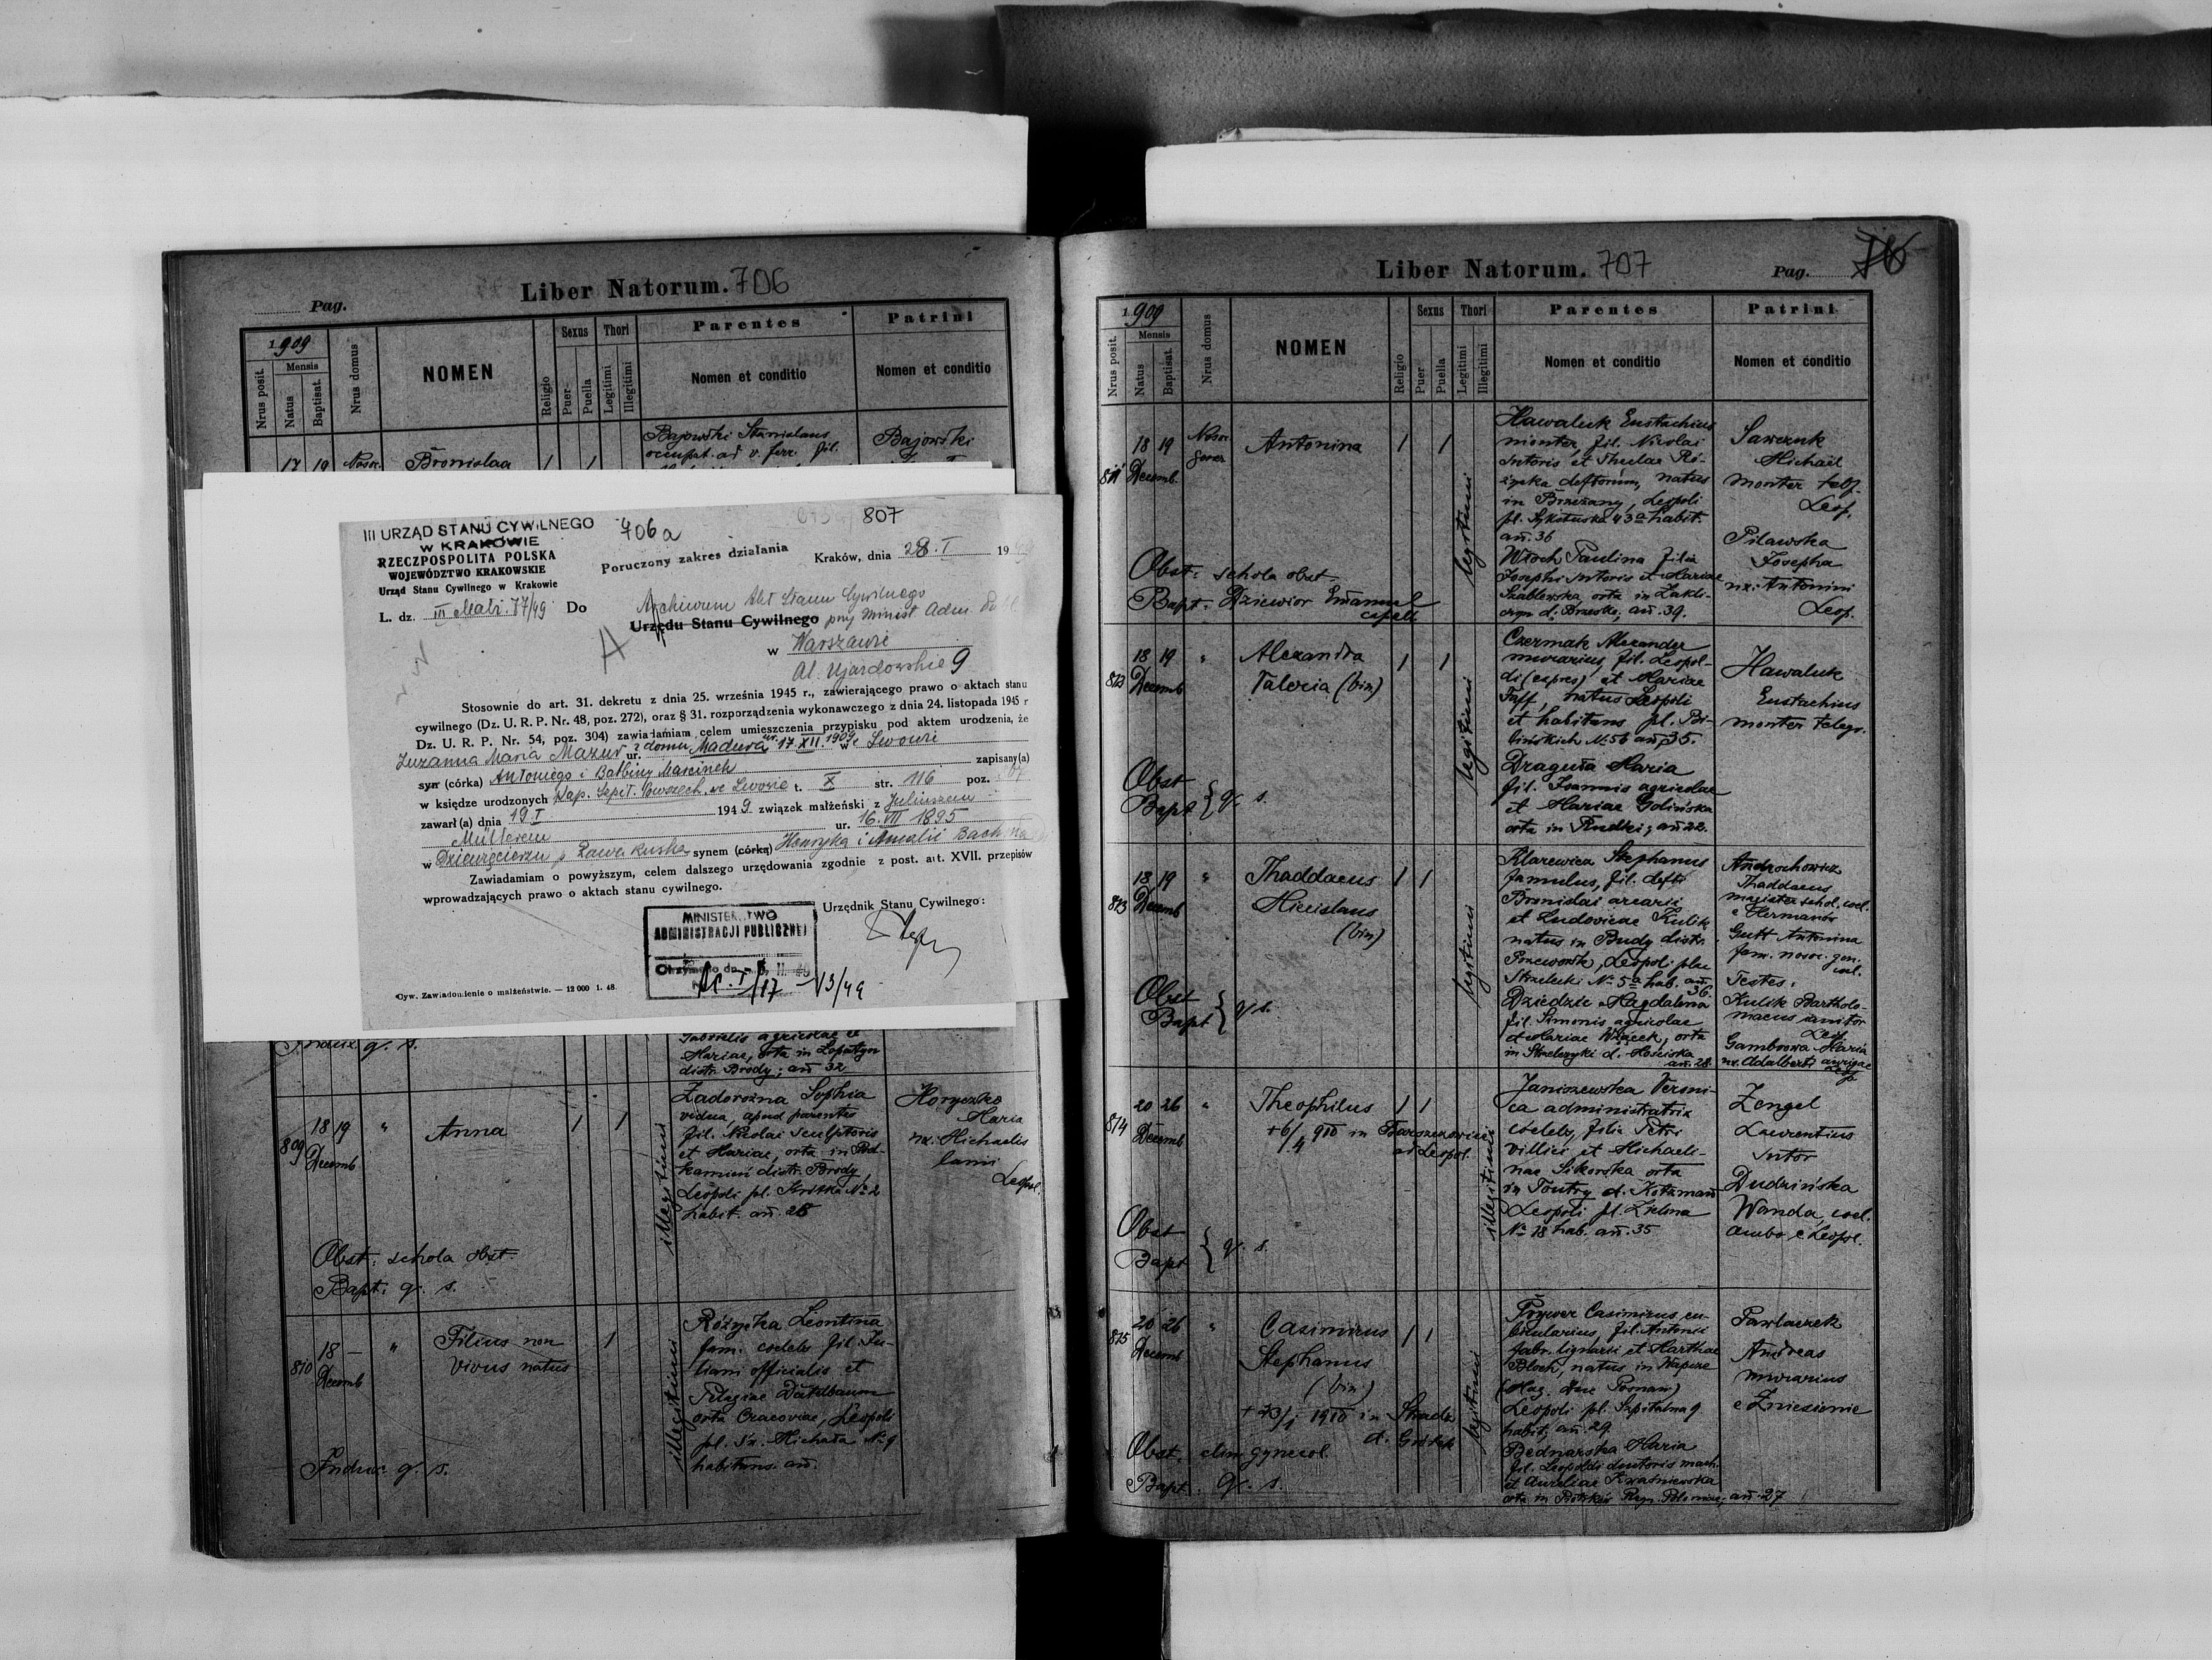 Pag.
Liber Natorum. 706
1909
Nrus posit.
Mensis
Natus
Baptisat.
Nrus domus
NOMEN
Religio
Sexus
Puer
Puella
Thori
Legitimi
Illegitimi
Parentes
Nomen et conditio
Patrini
Nomen et conditio
17 19 Nosoc. Bronislaa 1 1
Bajowski Stanislaus
occupat. ad v. ferr. fil.
Bajowski
III URZĄD STANU CYWILNEGO
W KRAKOWIE
RZECZPOSPOLITA POLSKA
WOJEWÓDZTWO KRAKOWSKIE
Urząd Stanu Cywilnego w Krakowie
L. dz. III Matr. 77/49 Do
706a
807
Poruczony zakres działania
Kraków, dnia 28. I 19
Archiwum Akt Stanu Cywilnego
Urzędu Stanu Cywilnego przy Minist Adm.
w Warszawie
Al. Ujazdowskie 9
Stosownie do art. 31. dekretu z dnia 25. września 1945 r., zawierającego prawo o aktach stanu
cywilnego (Dz. U. R. P. Nr. 48, poz. 272), oraz § 31. rozporządzenia wykonawczego z dnia 24. listopada 1945 r
Dz. U. R. P. Nr. 54, poz. 304) zawiadamiam celem umieszczenia przypisku pod aktem urodzenia, że
Zuzanna Maria Mazur z domu Madura ur. 17. XII. 1909 we Lwowie
syn (córka) Antoniego i Balbiny Marcinek zapisany(a)
w księdze urodzonych Kap. Szpit. Powszech. we Lwowie t. X str. 116 poz. 807
zawarł(a) dnia 19. I 1949 związek małżeński z Juliuszem
Müllerem ur. 16. VII 1895
w Dziewięcierzu p. Rawa Ruska synem (córką) Henryka i Amalii Bachman
Zawiadamiam o powyższym, celem dalszego urzędowania zgodnie z post. art. XVII. przepisów
wprowadzających prawo o aktach stanu cywilnego.
Urzędnik Stanu Cywilnego:
MINISTERSTWO
ADMINISTRACJI PUBLICZNEJ
Otrzymano dn.
Cyw. Zawiadomienie o małżeństwie. — 12 000 1. 48.
q. s.
Gabrielis agricolae et
Mariae, orta in Łopatyn
distr. Brody; añ 32
809
18 19
Decemb
"
Anna
1 1
illegitimi
Zadorożna Sophia
vidua, apud parentes
fil. Nicolai sculptoris
et Mariae, orta in Pod-
kamień distr. Brody
Leopoli pl. Krótka No 2
habit. añ. 28
Horyczko
Maria
ux. Michaelis
lanii
Leopol.
Obst: schola obst.
Bapt: q. s.
810
18 —
Decemb
"
Filius non
vivus natus
1
illegitimi
Różycka Leontina
fam. coelebs fil. Ju-
liani officialis et
Pelagiae Dattelbaum
orta Cracoviae, Leopoli
pl. Św. Michała No 9
habitans. añ.
Indux. q. s.
Liber Natorum. 707
Pag. 76
1909
Nrus posit.
Mensis
Natus
Baptisat.
Nrus domus
NOMEN
Religio
Sexus
Puer
Puella
Thori
Legitimi
Illegitimi
Parentes
Nomen et conditio
Patrini
Nomen et conditio
811
18 19
Decemb.
Nosoc.
gener.
Antonina
1 1
legitimi
Hawaluk Eustachius
monter, fil. Nicolai
sutoris et Theclae Ró-
życka deftorum, natus
in Brzeżany, Leopoli
pl. Sykstuska 43a habit.
añ. 36
Włoch Paulina filia
Josephi sutoris et Mariae
Szablewska orta in Zakli-
czyn d. Brzesko, añ. 39.
Sawczuk
Michaël
monter telef.
Leop.
Pilawska
Josepha
ux. Antonini
Leop.
Obst: schola obst
Bapt. Dziewior Emanuel
capell
812
18 19
Decemb
"
Alexandra
Valeria (bin)
1 1
legitimi
Czermak Alexander
murarius, fil. Leopol-
di (expres) et Mariae
Faff, natus Leopoli
et habitans pl. Bi-
lińskich No 56 añ 35.
Draguła Maria
fil. Joannis agricolae
et Mariae Golińska
orta in Rudki; añ 22.
Hawaluk
Eustachius
monter telegr.
Obst
Bapt } q. s.
813
18 19
Decemb
"
Thaddaeus
Miecislaus
(bin)
1 1
legitimi
Klarewicz Stephanus
famulus, fil. defti
Bronislai arcarii
et Ludovicae Kulik
natus in Budy distr.
Przeworsk, Leopoli plac
Strzelecki No 5a hab. añ.
36.
Dziedzic Magdalena
fil. Simonis agricolae
et Mariae Włącek, orta
in Strzelczyki d. Mościska
añ. 28.
Androchowicz
Thaddaeus
magister schol. coel.
e Hermanów
Gutt Antonina
fam. nosoc. gen.
coel.
Testes:
Kulik Bartholo-
maeus janitor
Leop
Gambrowa Maria
ux. Adalberti aurigae
Leop
Obst
Bapt } q. s.
814
20 26
Decemb
"
Theophilus
+6/4 910 in Barszczowice
ad Leopol.
1 1
illegitimi
Janiszewska Veroni-
ca administratrix
coelebs, filia Petri
villici et Michaeli-
nae Sikorska orta
in Toutry d. Kotzman
Leopoli pl. Zielona
No 18 hab. añ. 35
Zengel
Laurentius
sutor
Dudzińska
Wanda, coel.
ambo e Leopol.
Obst
Bapt } q. s.
815
20 26
Decemb
"
Casimirus
Stephanus
(bin)
+23/1 1910 in Stradz
d. Gródek
1 1
legitimi
Prywer Casimirus cu-
bicularius, fil. Antonii
fabr. lignarii et Marthae
Bloch, natus in
(Mag. Duc Poznań)
Leopoli pl. Szpitalna 9
habit, añ. 29.
Bednarska Maria
fil. Leopoldi ductoris mach.
et Aureliae Kwaśniewska
orta in Regn. Poloniae, añ. 27
Pawlaczek
Andreas
murarius
e Zniesienie
Obst. clin. gynecol.
Bapt. q. s.